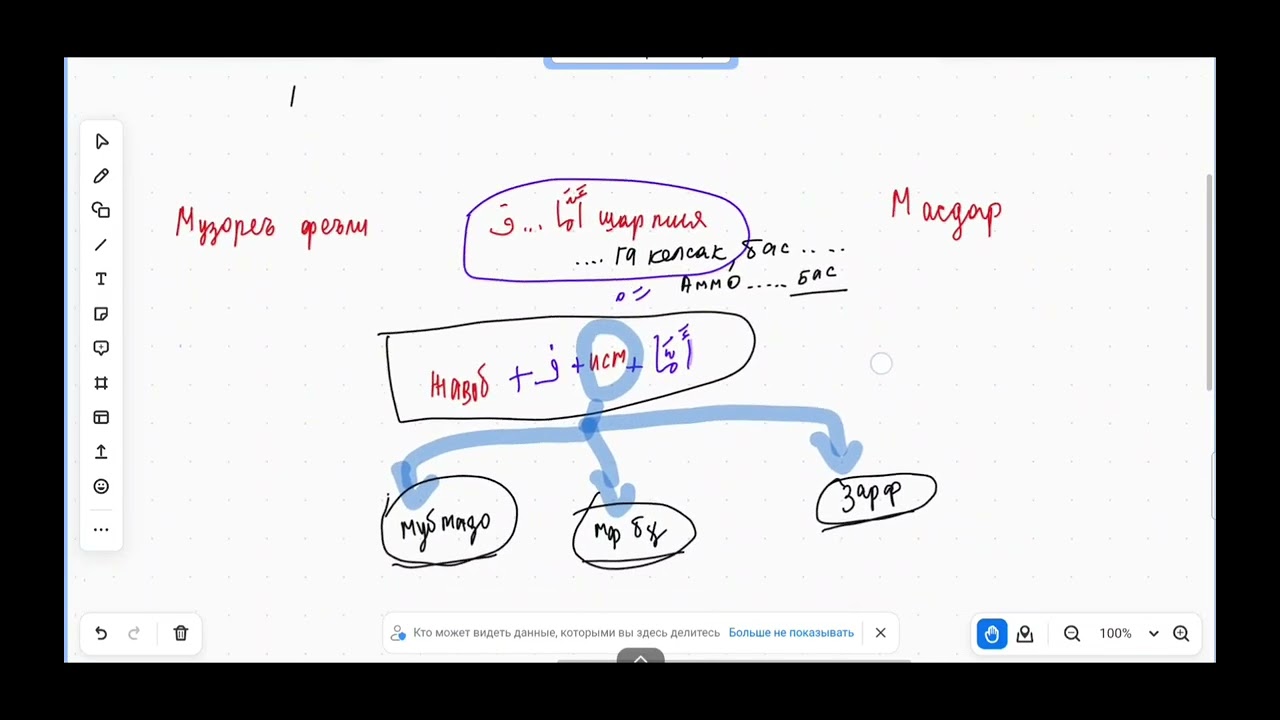 Музореъ феъли
فَ ... أَمَّا шарпия
Масдар
.... га келсак, бас .....
Аммо ..... бас
Жавоб + فَ + исм + أَمَّا
мубтадо
Зарф
Кто может видеть данные, которыми вы здесь делитесь Больше не показывать
100%